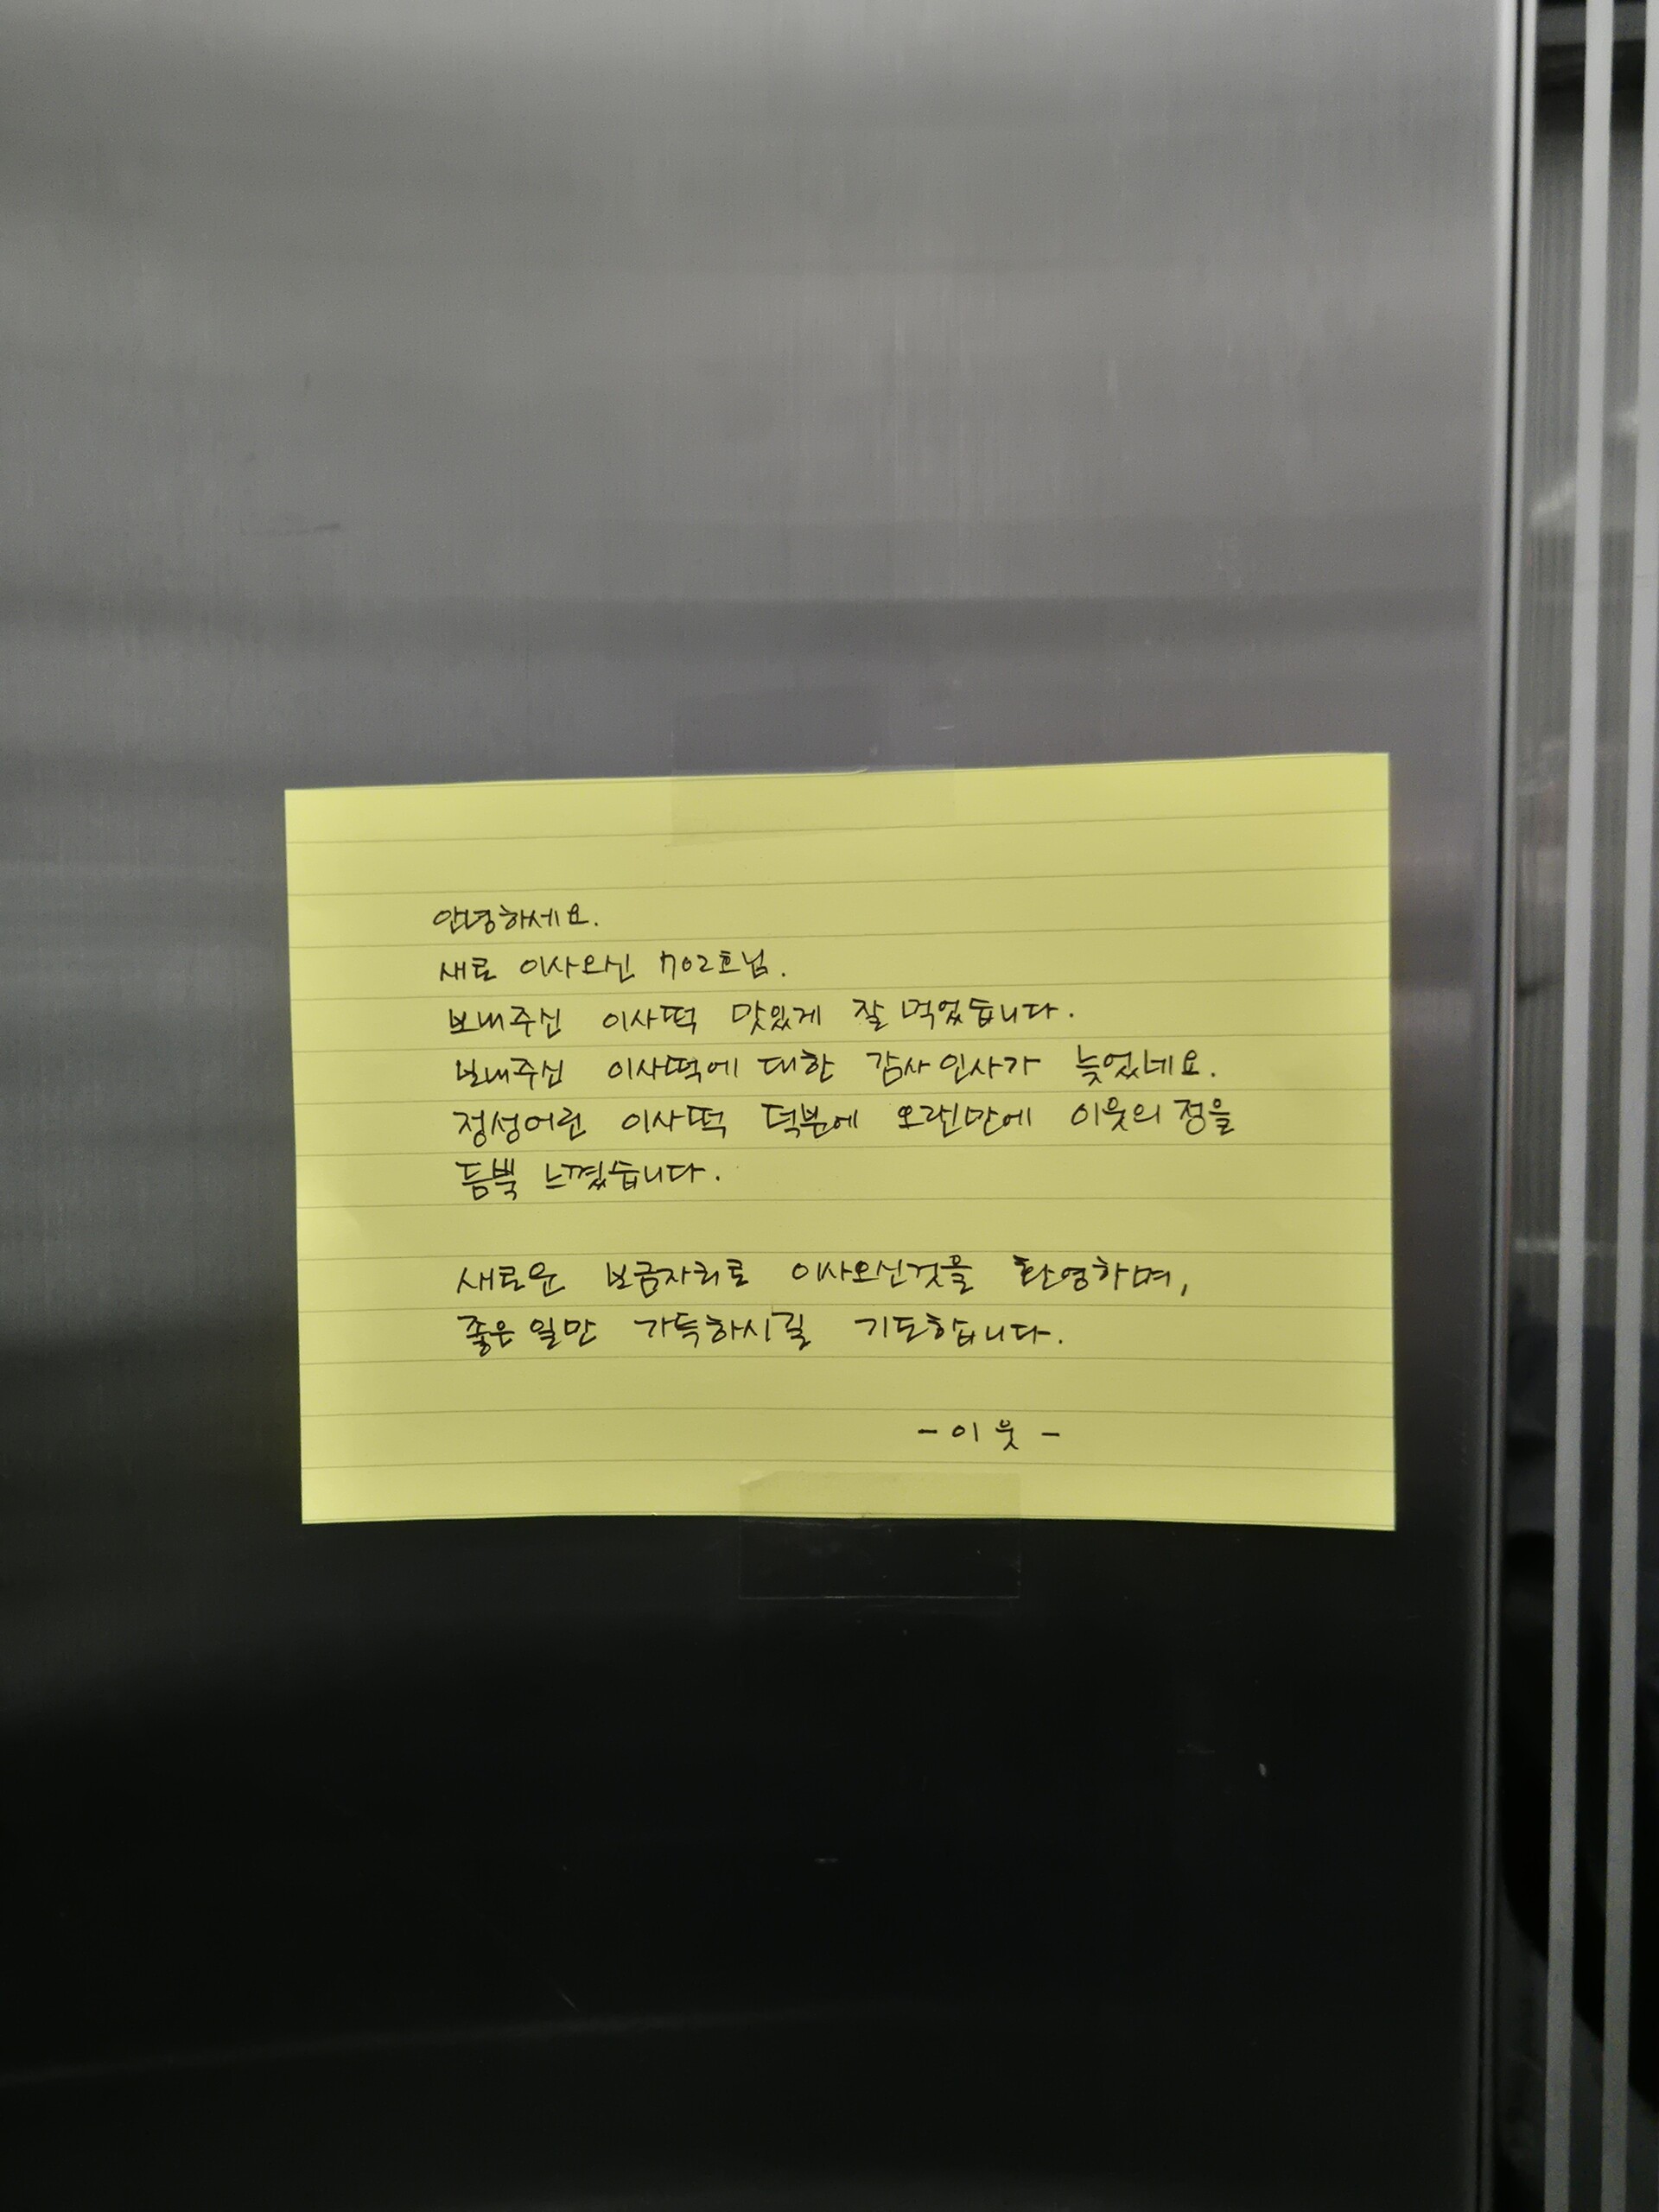 안녕하세요.
새로 이사오신 702호님.
보내주신 이사떡 맛있게 잘 먹었습니다.
보내주신 이사떡에 대한 감사인사가 늦었네요.
정성어린 이사떡 덕분에 오랜만에 이웃의 정을
듬뿍 느꼈습니다.
새로운 보금자리로 이사오신것을 환영하며,
좋은 일만 가득하시길 기도합니다.
- 이웃 -